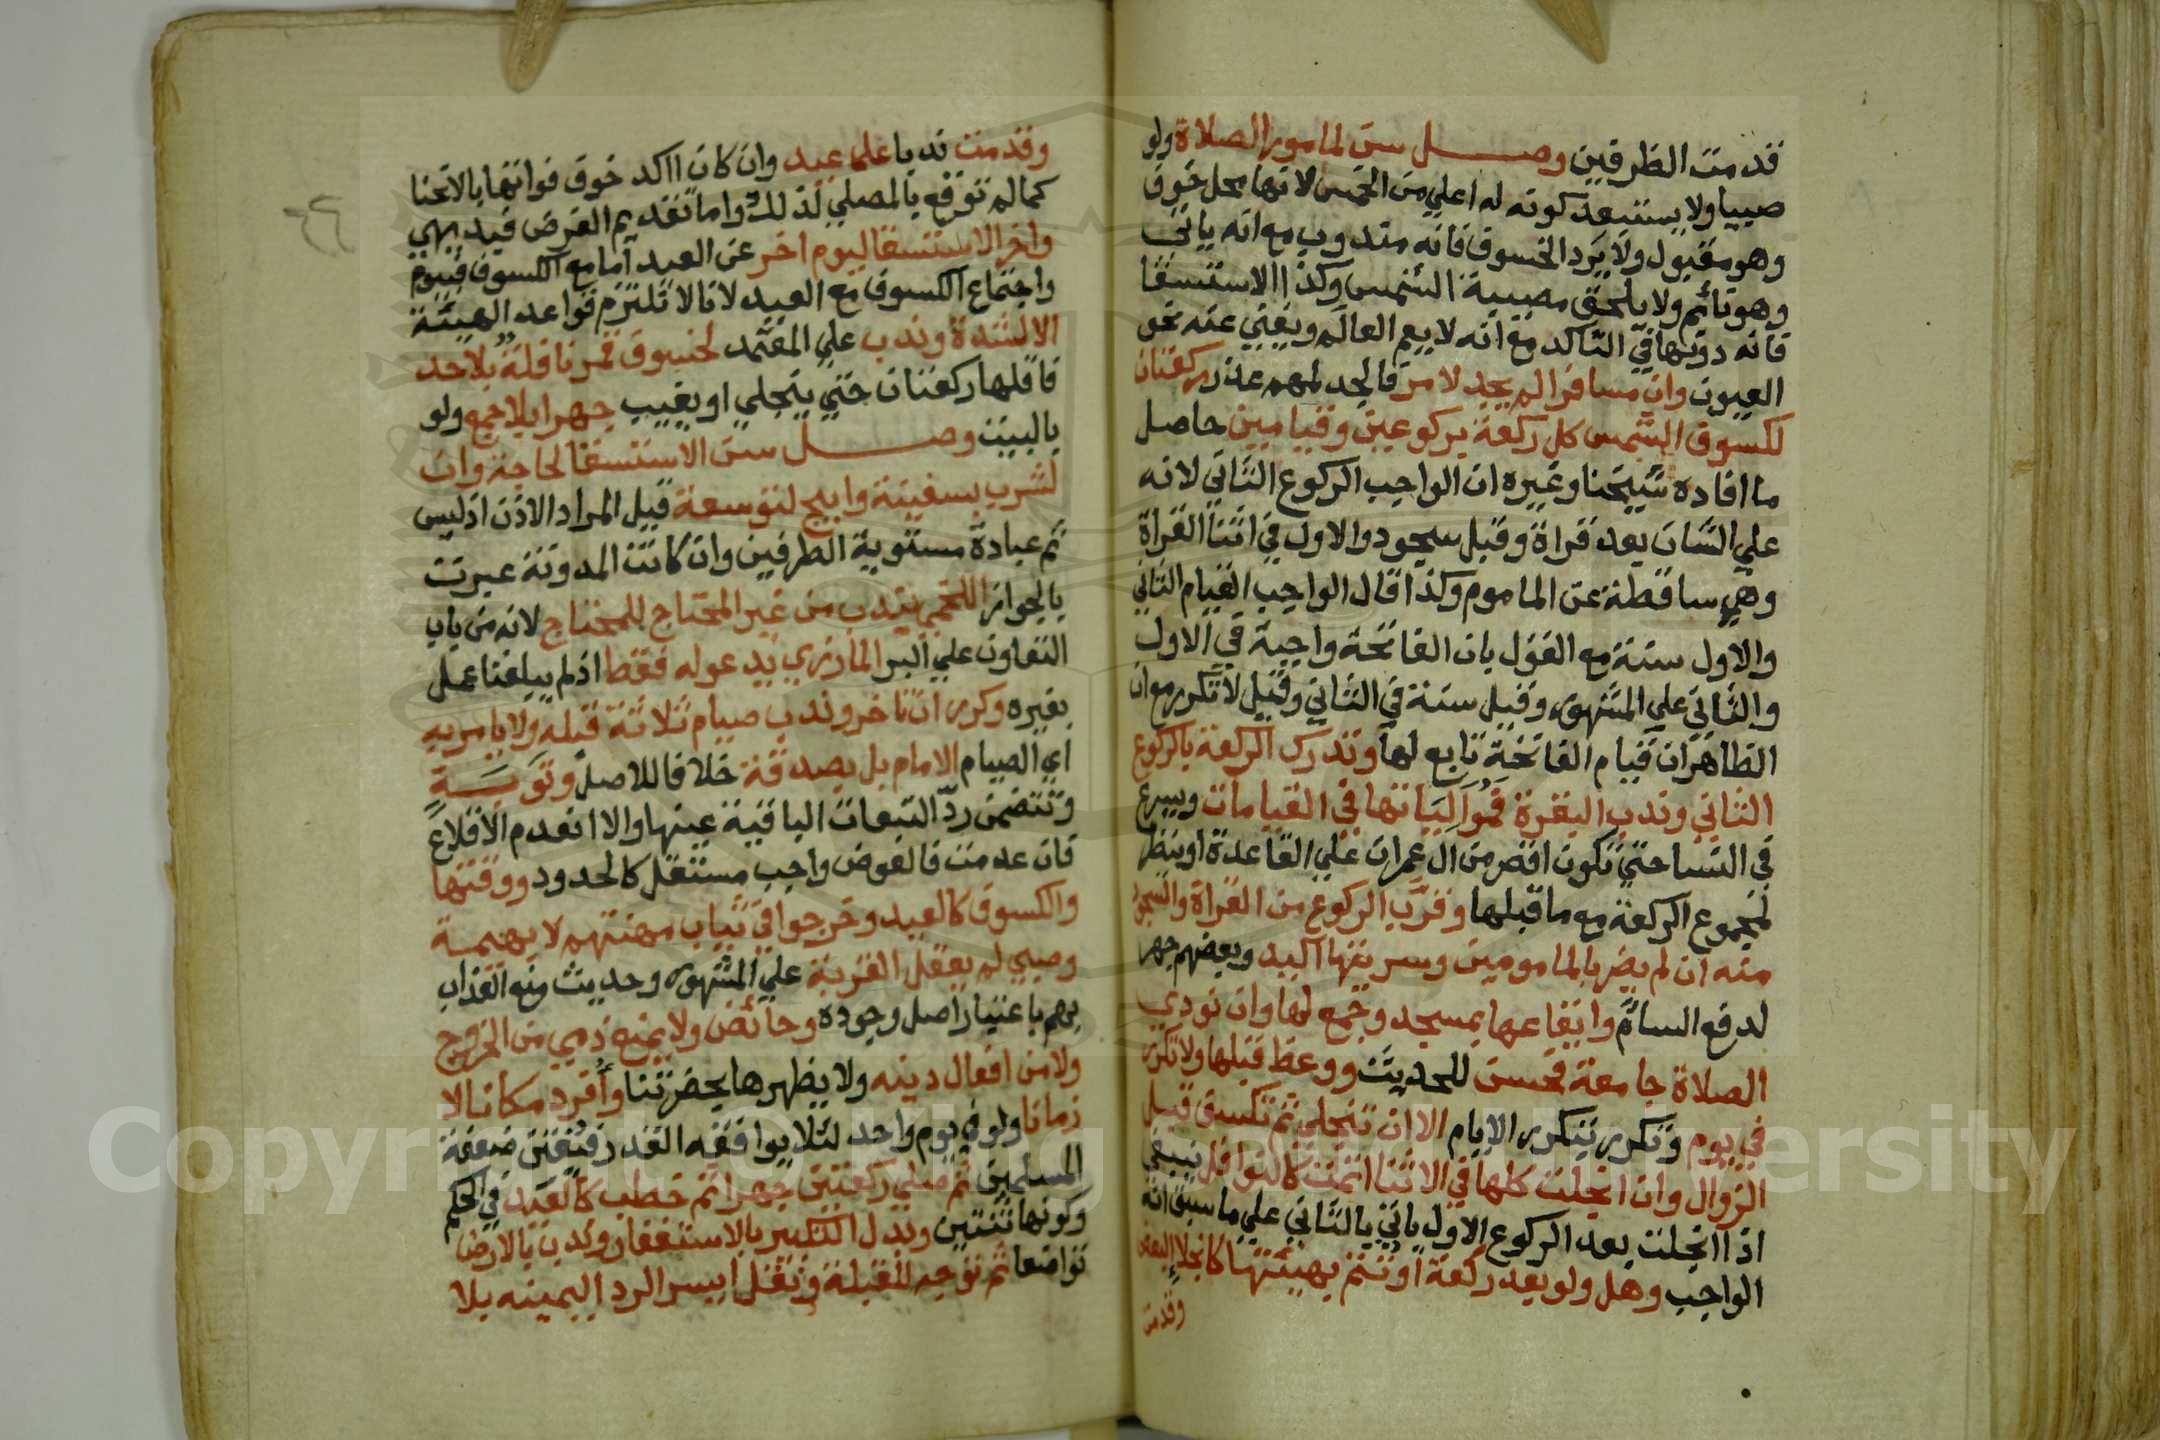 قدمت الظرفين وصل سن لمامور الصلاة ولو
صبيا ولا يستبعد كونه له اعلي من الخمس لانها محل خوف
وهو مقبول ولا يرد الخسوف فانه مندوب مع انه ياتي
وهو نائم ولا يلحق مصيبة الشمس وكذا الاستسقا
فانه دونها في التاكد مع انه لا يعم العالم ويغني عنه نحو
العيون وان مسافرا لم يجد لامر فالجد لمهم عذر ركعتان
لكسوف الشمس كل ركعة بركوعين وقيامين حاصل
ما افاده شيخنا وغيره ان الواجب الركوع الثاني لانه
علي الشان بعد قراة وقبل سجود والاول في اثنا القراة
وهي ساقطة عن الماموم وكذا قال الواجب القيام الثاني
والاول سنة مع القول بان الفاتحة واجبة في الاول
والثاني علي المشهور وقيل سنة في الثاني وقيل لا تكرر مع ان
الظاهر ان قيام الفاتحة تابع لها وتدرك الركعة بالركوع
الثاني وندب البقرة فموالياتها في القيامات ويسرع
في النسا حتي تكون اقصر من ال عمران علي القاعدة او ينظر
لمجموع الركعة مع ما قبلها وقرب الركوع من القراة والسجود
منه ان لم يضر بالمامومين وسريتها اكيد وبعضهم جهر
لدفع السآم وايقاعها بمسجد وجمع لها وان نودي
الصلاة جامعة فحسن للحديث ووعظ قبلها ولا تكرر
في يوم وتكرر بتكرر الايام الا ان تنجلي ثم تكسف قبل
الزوال وان انجلت كلها في الاثنا اتمت كالنوافل ينبغي
اذا انجلت بعد الركوع الاول ياتي بالثاني علي ما سبق انه
الواجب وهل ولو بعد ركعة او تتم بهيئتها كانجلا البعض
وقدمت
وقدمت ندبا علي عيد وان كان اكد خوف فواتها بالانجلا
كما لم توقع بالمصلي لذلك واما تقديم الفرض فبديهي
واخر الاستسقا ليوم اخر عن العيد اما مع الكسوف فيوم
واجتماع الكسوف مع العيد لانا لا نلتزم قواعد الهيئة
الا لشدة وندب علي المعتمد لخسوف قمر نافلة بلا حد
فاقلها ركعتان حتي ينجلي او يغيب جهرا بلا جمع ولو
بالبيت وصل سن الاستسقا لحاجة وان
لشرب بسفينة وابيح لتوسعة قيل المراد الاذن اذ ليس
ثم عبادة مستوية الطرفين وان كانت المدونة عبرت
بالجواز اللخمي يندب من غير المحتاج للمحتاج لانه من باب
التعاون علي البر المازري يدعو له فقط اذ لم يبلغنا عمل
بغيره وكرر ان تاخر وندب صيام ثلاثة قبله ولا يامر به
اي الصيام الامام بل بصدقة خلافا للاصل وتوبة
وتتضمن رد التبعات الباقية عينها والا انعدم الاقلاع
فان عدمت فالعوض واجب مستقل كالحدود ووقتها
والكسوف كالعيد وخرجوا في ثياب مهنتهم لا بهيمة
وصبي لم يعقل القربة علي المشهور وحديث منع العذاب
بهم باعتبار اصل وجوده وحائض ولا يمنع ذمي من الخروج
ولا من افعال دينه ولا يظهرها بحضرتنا وافرد مكانا لا
زمانا ولو في يوم واحد لئلا يوافقه القدر فتفتتن ضعفة
المسلمين ثم صلي ركعتين جهرا ثم خطب كالعيد في الحكم
وكونها ثنتين وبدل التكبير بالاستغفار وندب بالارض
تواضعا ثم توجه للقبلة ونقل ايسر الرداء ليمينه بلا